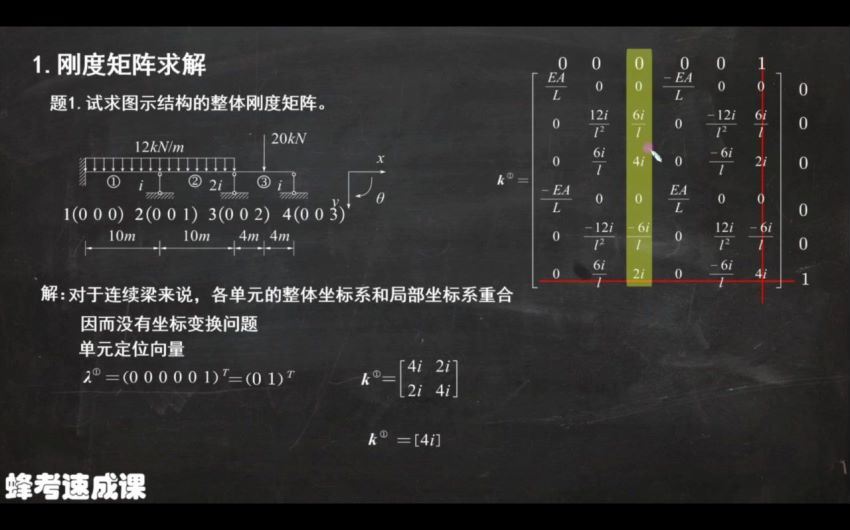 1.刚度矩阵求解
题1.试求图示结构的整体刚度矩阵。
12kN/m
20kN
① i ② 2i ③ i
x
y
θ
1(0 0 0) 2(0 0 1) 3(0 0 2) 4(0 0 3)
10m 10m 4m 4m
解:对于连续梁来说,各单元的整体坐标系和局部坐标系重合
因而没有坐标变换问题
单元定位向量
λ^① =(0 0 0 0 0 1)^T=(0 1)^T
k^①=[4i 2i
2i 4i]
k^① =[4i]
0 0 0 0 0 1
k^①=
EA/L 0 0 -EA/L 0 0 0
0 12i/l² 6i/l 0 -12i/l² 6i/l 0
0 6i/l 4i 0 -6i/l 2i 0
-EA/L 0 0 EA/L 0 0 0
0 -12i/l² -6i/l 0 12i/l² -6i/l 0
0 6i/l 2i 0 -6i/l 4i 1
蜂考速成课